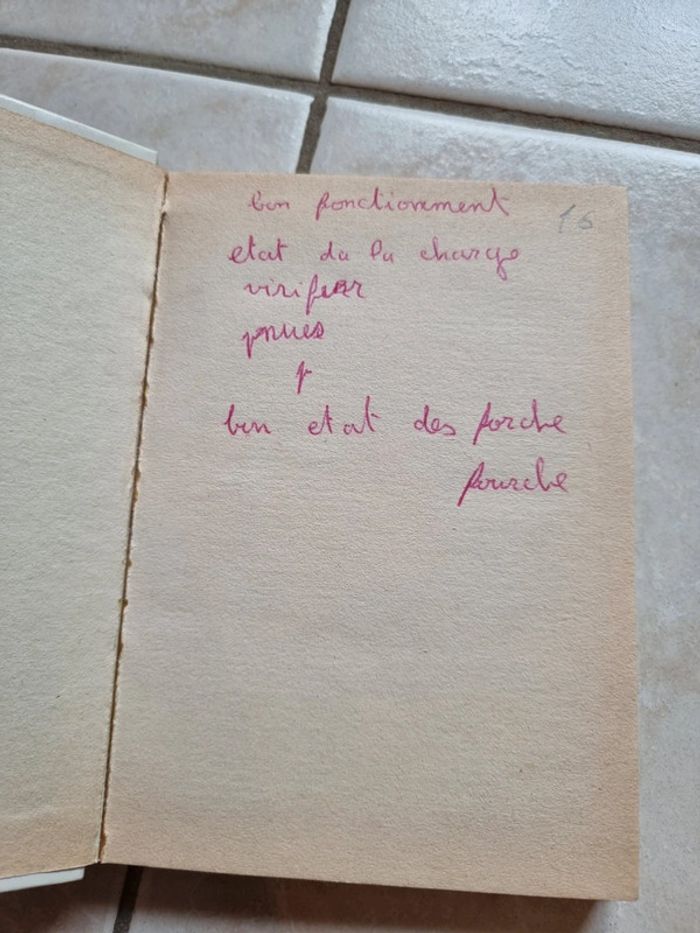 bon fonctionement
16
etat da la charge
virifier
pnues
p
bon etat des forche
fourche